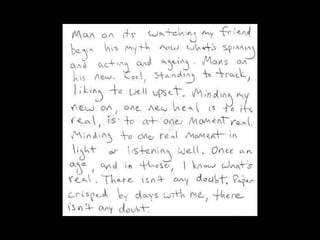 Man on its watching my friend
begin his myth now what's spinning
and acting and ageing. Mans on
his new. Cool, standing to track,
liking to well upset. Minding my
new on, one new heal is to its
real, is to at one moment real.
Minding to one real moment in
light or listening well. Once an
age, and in those, I know what's
real. There isn't any doubt. Paper
crisped by days with me, there
isn't any doubt.